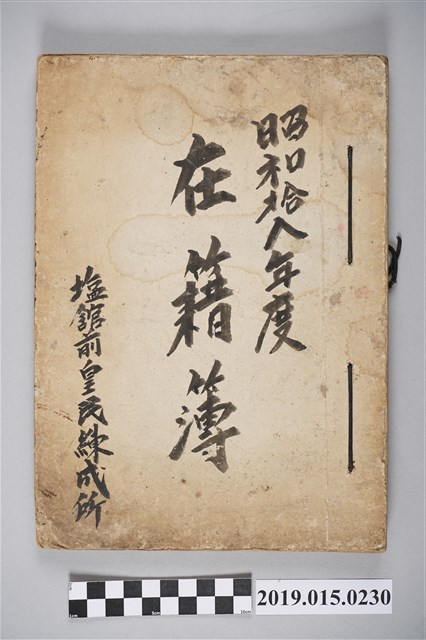 昭和拾八年度
在籍簿
塩舘前皇民練成所
2019.015.0230